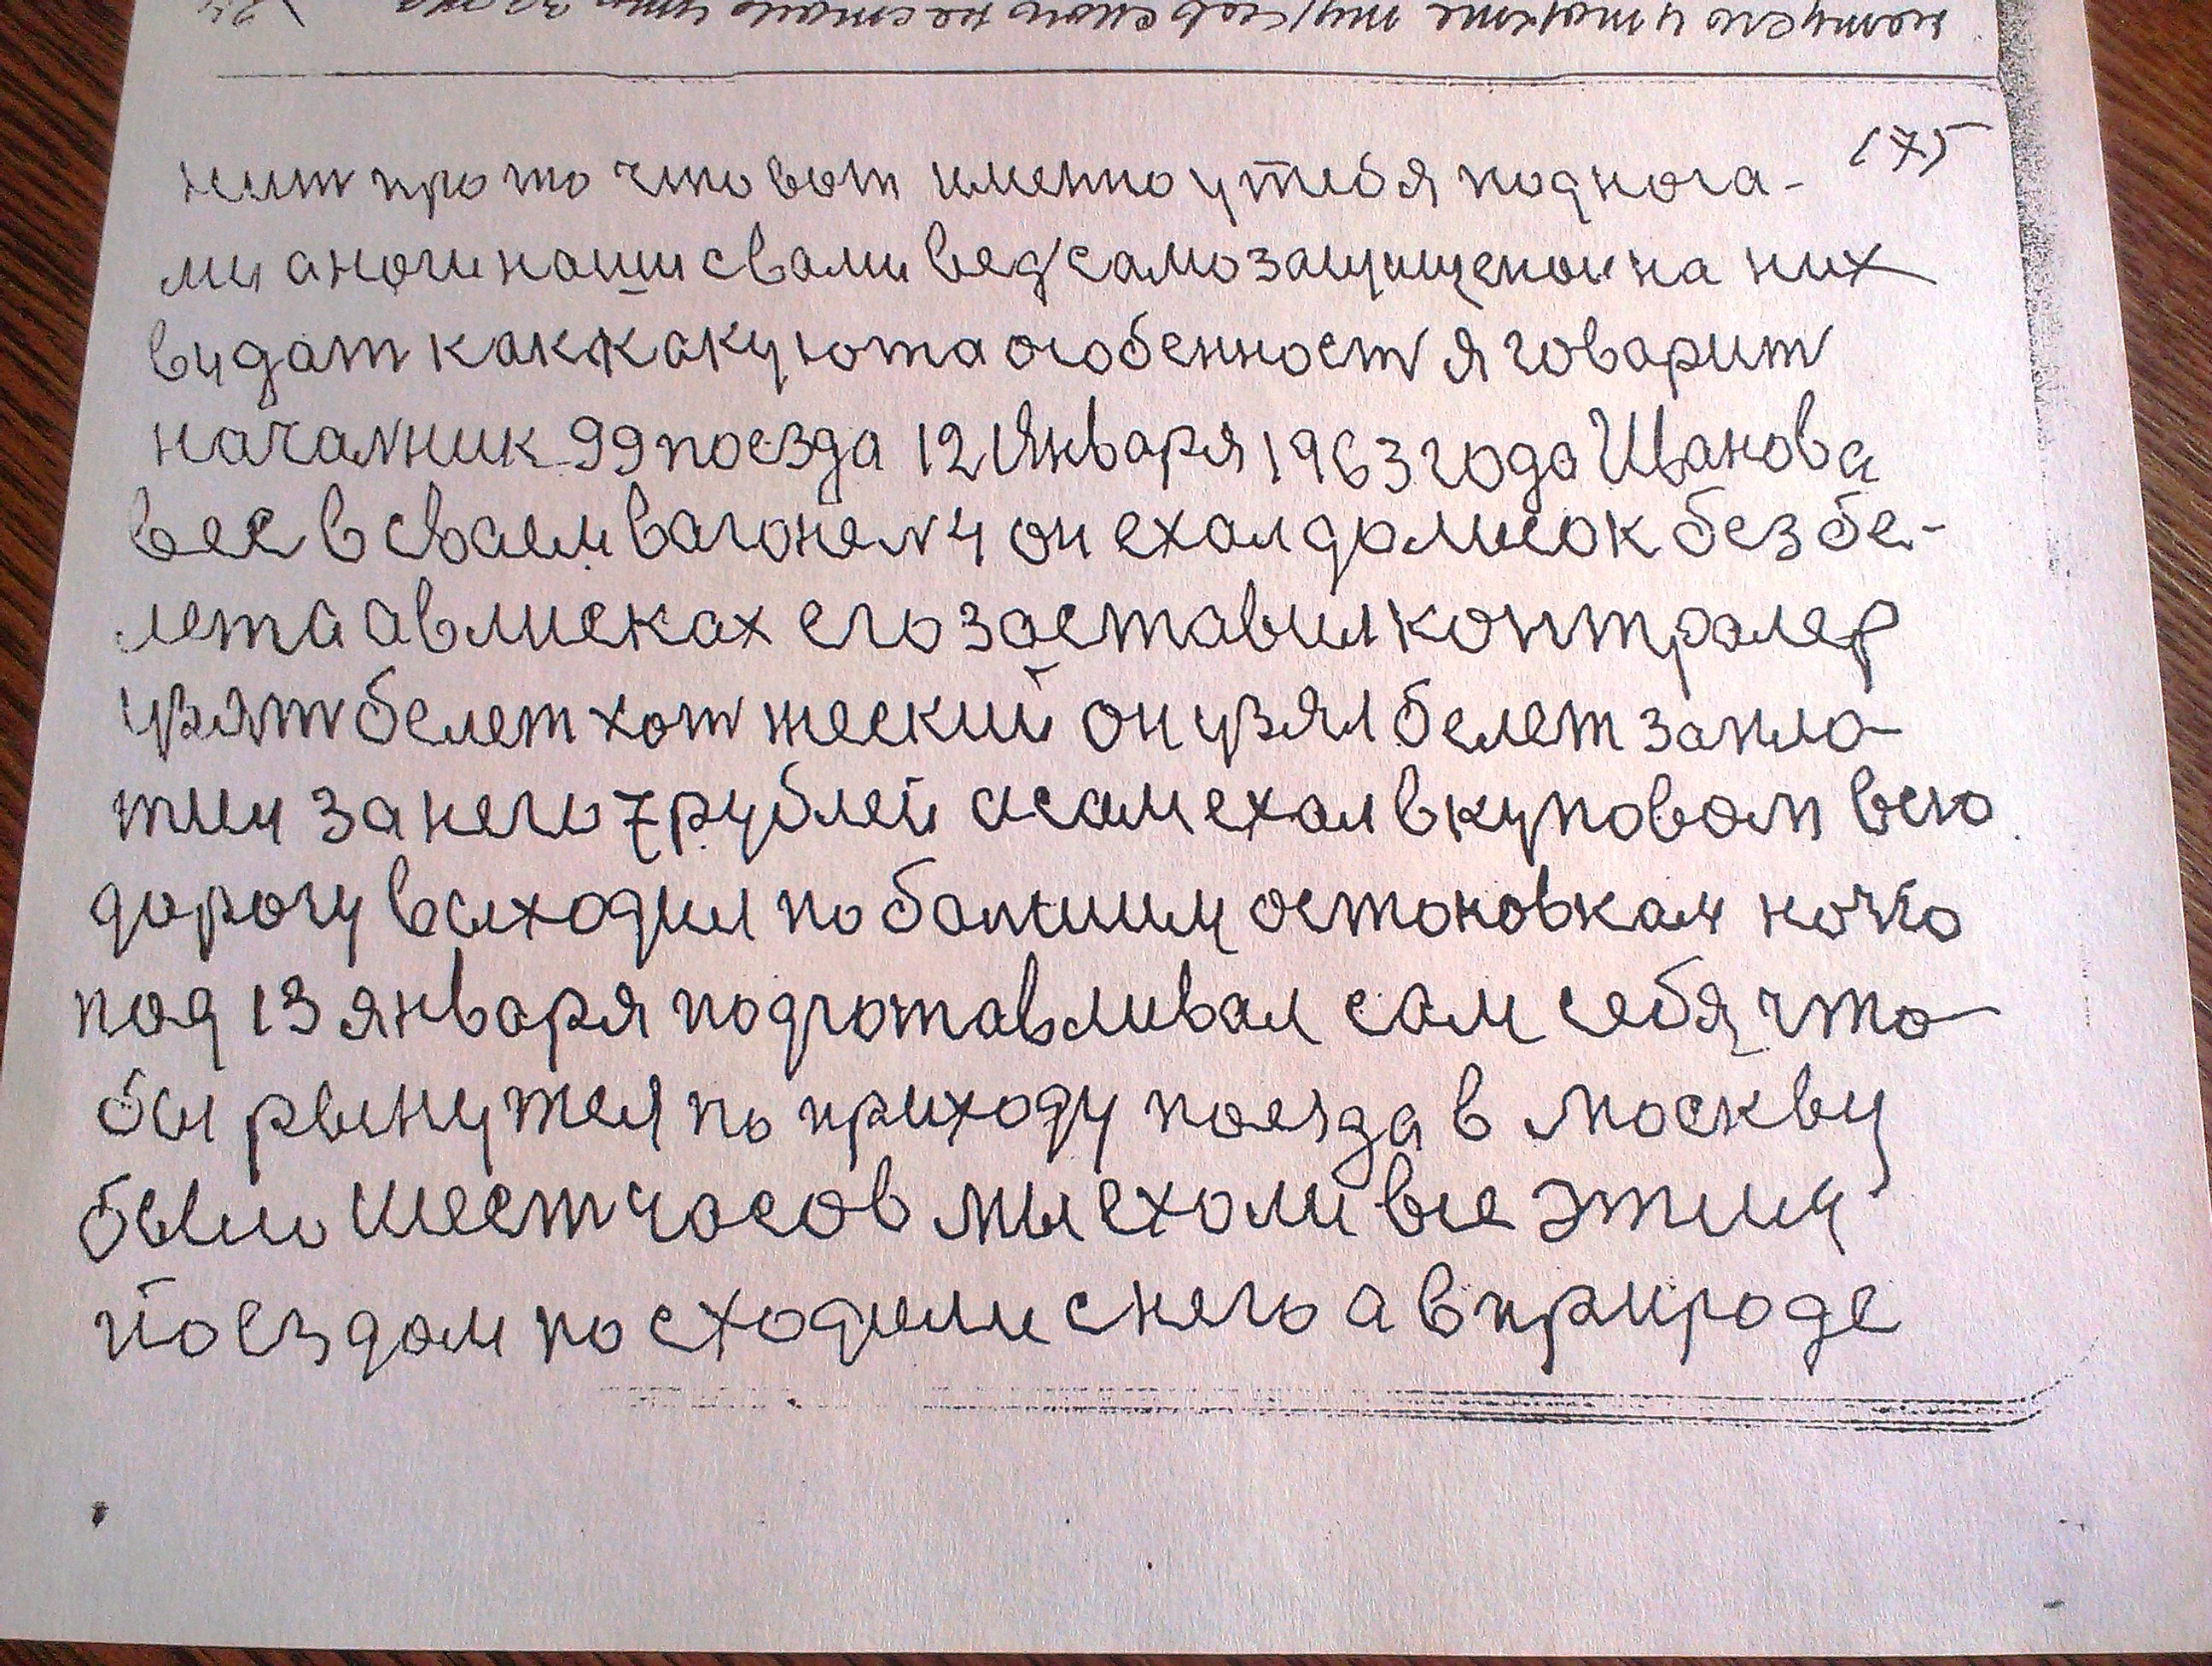 175
нит про то что вот именно у тебя поднога-
ми а ноги наши свами вед самозащищеной на них
видат как какуюта особенност я говарит
начальник 99 поезда 12 Января 1963 года Иванова
вес в сваем вагоне N 4 он ехал до мисок без бе-
лета а в мисках его заставил контралер
узят белет хот жеский он узял белет запла-
тил за него 7 рублей а сам ехал в куповам всю
дорогу выходил по балшим остоновкам ночю
под 13 января подготавливал сам себя что
бы рынутся по приходу поезда в москву
было шест часов мы ехали все этим
поездам по сходили снего а в природе